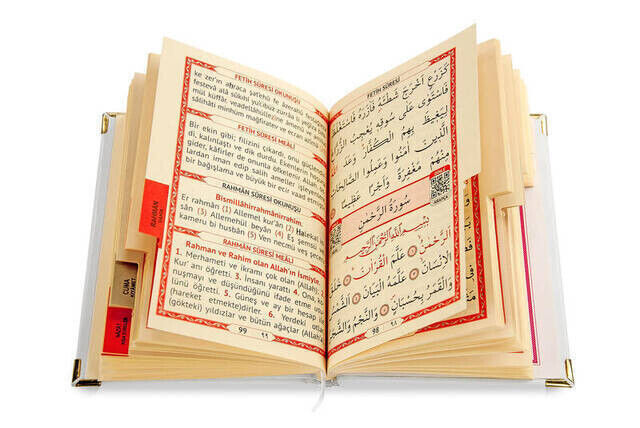 FETİH SÛRESİ OKUNUŞU
ke zer'in ahrace şat'ehû fe âzerahû festağleza
festevâ alâ sûkıhî yu'cibüz zürraa li yeğîza bihimül
mül küffâr, veadellâhüllezine âmenû ve amilüs
sâlihâti minhüm mağfiratev ve ecran azîmâ
FETİH SÛRESİ MEÂLİ
Bir ekin gibi; filizini çıkardı, onu güçlendir
di, kalınlaştı ve dik durdu. Ekenlerin hoşuna
gider, kâfirler de onunla öfkelenir. Allah
lardan iman edip salih ameller işleyenlere
bir bağışlama ve büyük bir ecir vaad etti
RAHMÂN SÛRESİ OKUNUŞU
Bismillâhirrahmânirrahîm.
Er rahmân (1) Allemel kur'ân (2) Halekal in
sân (3) Allemehül beyân (4) Eş şemsü vel
kameru bi husbân (5) Ven necmü veş şeceru
RAHMÂN SÛRESİ MEÂLİ
Rahman ve Rahim olan Allah'ın İsmiyle
1. Merhameti ve ikramı çok olan (Allah), 2.
Kur'anı öğretti. 3. İnsanı yarattı 4. Ona, ko
nuşmayı ve düşündüğünü ifade etme us
lünü öğretti. 5. Güneş ve ay bir hesap ile
(hareket etmekte)dirler. 6. Yerdeki otlar
(gökteki) yıldızlar ve bütün ağaçlar (Allah'
99 ٩٩
RAHMÂN
CUMA
FETİH SÛRESİ
كَزَرْعٍ اَخْرَجَ شَطْـَٔهُ فَاٰزَرَهُ فَاسْتَغْلَظَ
فَاسْتَوٰى عَلٰى سُوقِه۪ يُعْجِبُ الزُّرَّاعَ
لِيَغ۪يظَ بِهِمُ الْكُفَّارَۜ وَعَدَ اللّٰهُ
الَّذ۪ينَ اٰمَنُوا وَعَمِلُوا الصَّالِحَاتِ
مِنْهُمْ مَغْفِرَةً وَاَجْرًا عَظ۪يمًا
سُورَةُ الرَّحْمٰنِ
بِسْمِ اللّٰهِ الرَّحْمٰنِ الرَّح۪يمِ
اَلرَّحْمٰنُۙ عَلَّمَ الْقُرْاٰنَۜ خَلَقَ
الْاِنْسَانَۙ عَلَّمَهُ الْبَيَانَ اَلشَّمْسُ
وَالْقَمَرُ بِحُسْبَانٍۖ وَالنَّجْمُ وَالشَّجَرُ
98 ٩٨